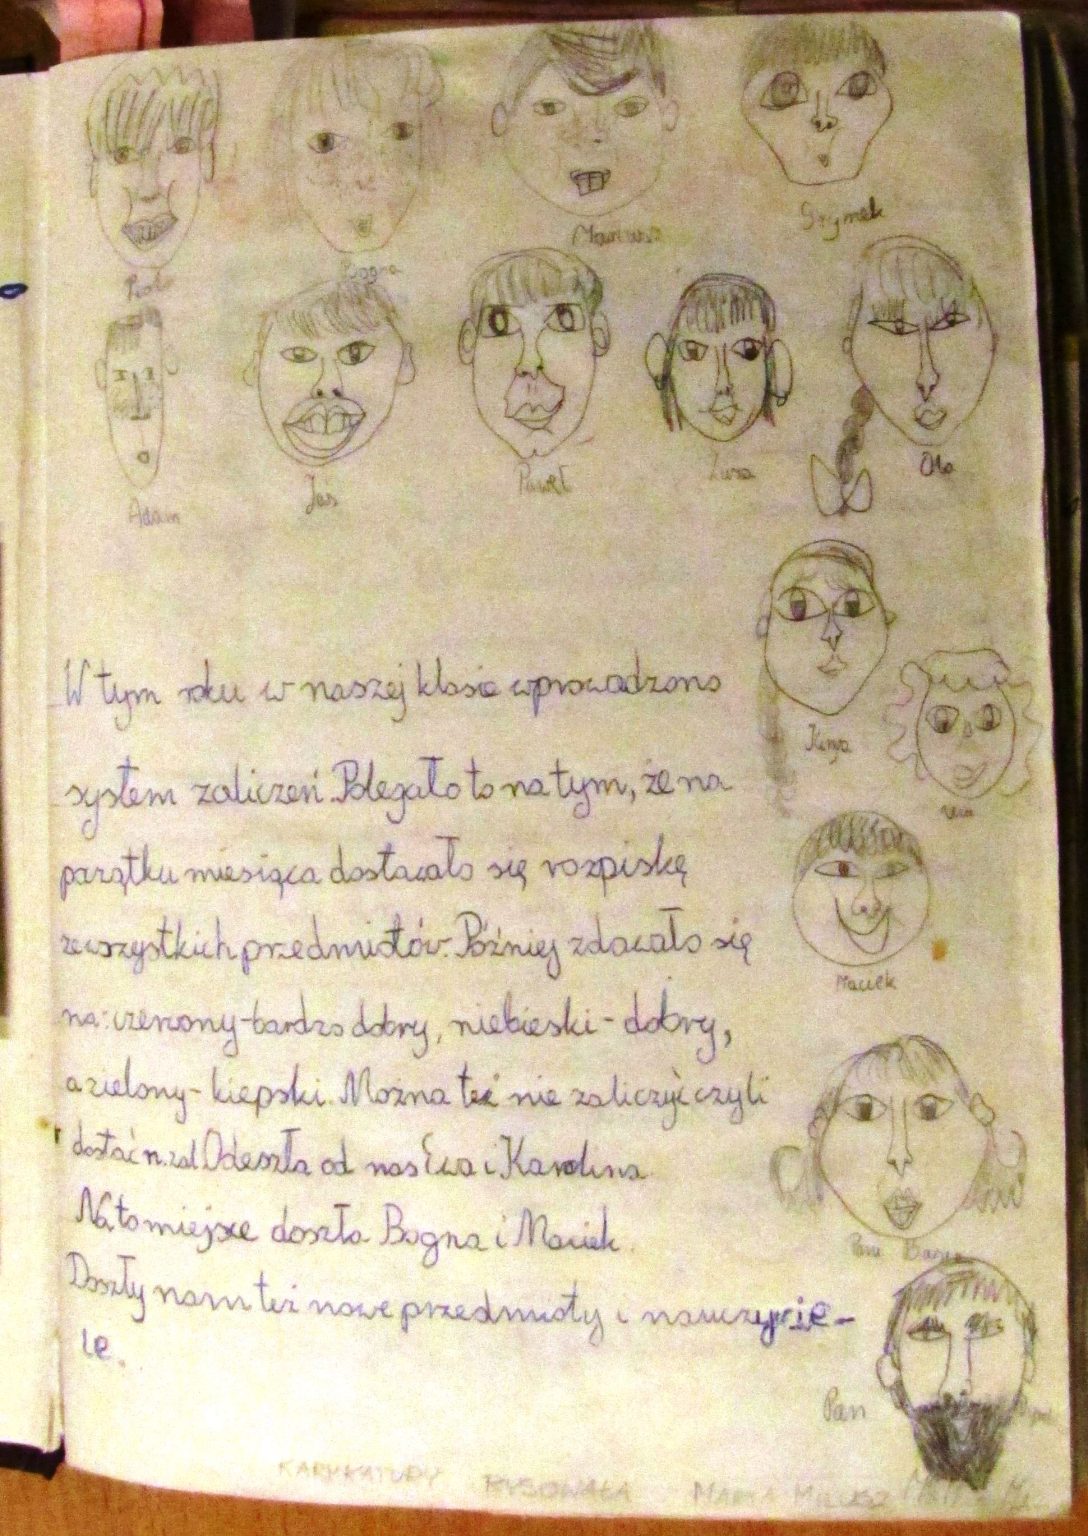 Bogna
Mariusz
Szymek
Adam
Jaś
Paweł
Zuza
Ola
Kinga
W tym roku w naszej klasie wprowadzono
system zaliczeń. Polegało to na tym, że na
początku miesiąca dostawało się rozpiskę
ze wszystkich przedmiotów. Później zdawało się
na: czerwony - bardzo dobry, niebieski - dobry,
a zielony - kiepski. Można też nie zaliczyć czyli
dostać n.zal Odeszła od nas Ewa i Karolina
Na to miejsce doszła Bogna i Maciek.
Doszły nam też nowe przedmioty i nauczycie-
le.
Maciek
Pani Basia
Pan
KARYKATURY RYSOWAŁA MARIA